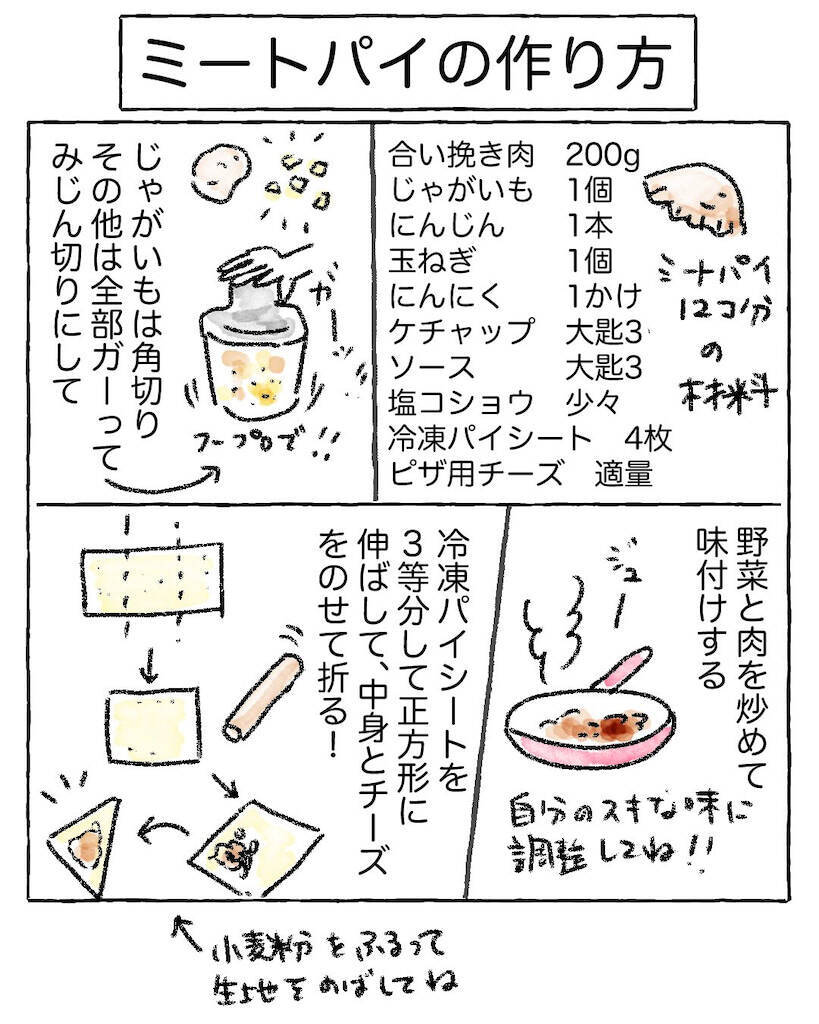 ミートパイの作り方
合い挽き肉 200g
じゃがいも 1個
にんじん 1本
玉ねぎ 1個
にんにく 1かけ
ケチャップ 大匙3
ソース 大匙3
塩コショウ 少々
冷凍パイシート 4枚
ピザ用チーズ 適量
ミナパイ
12コ分
の
材料
じゃがいもは角切り
その他は全部ガーって
みじん切りにして
ガー
フープロで!!
野菜と肉を炒めて
味付けする
ジュー
自分のスキな味に
調整してね!!
冷凍パイシートを
3等分して正方形に
伸ばして、中身とチーズ
をのせて折る!
小麦粉をふるって
生地をのばしてね